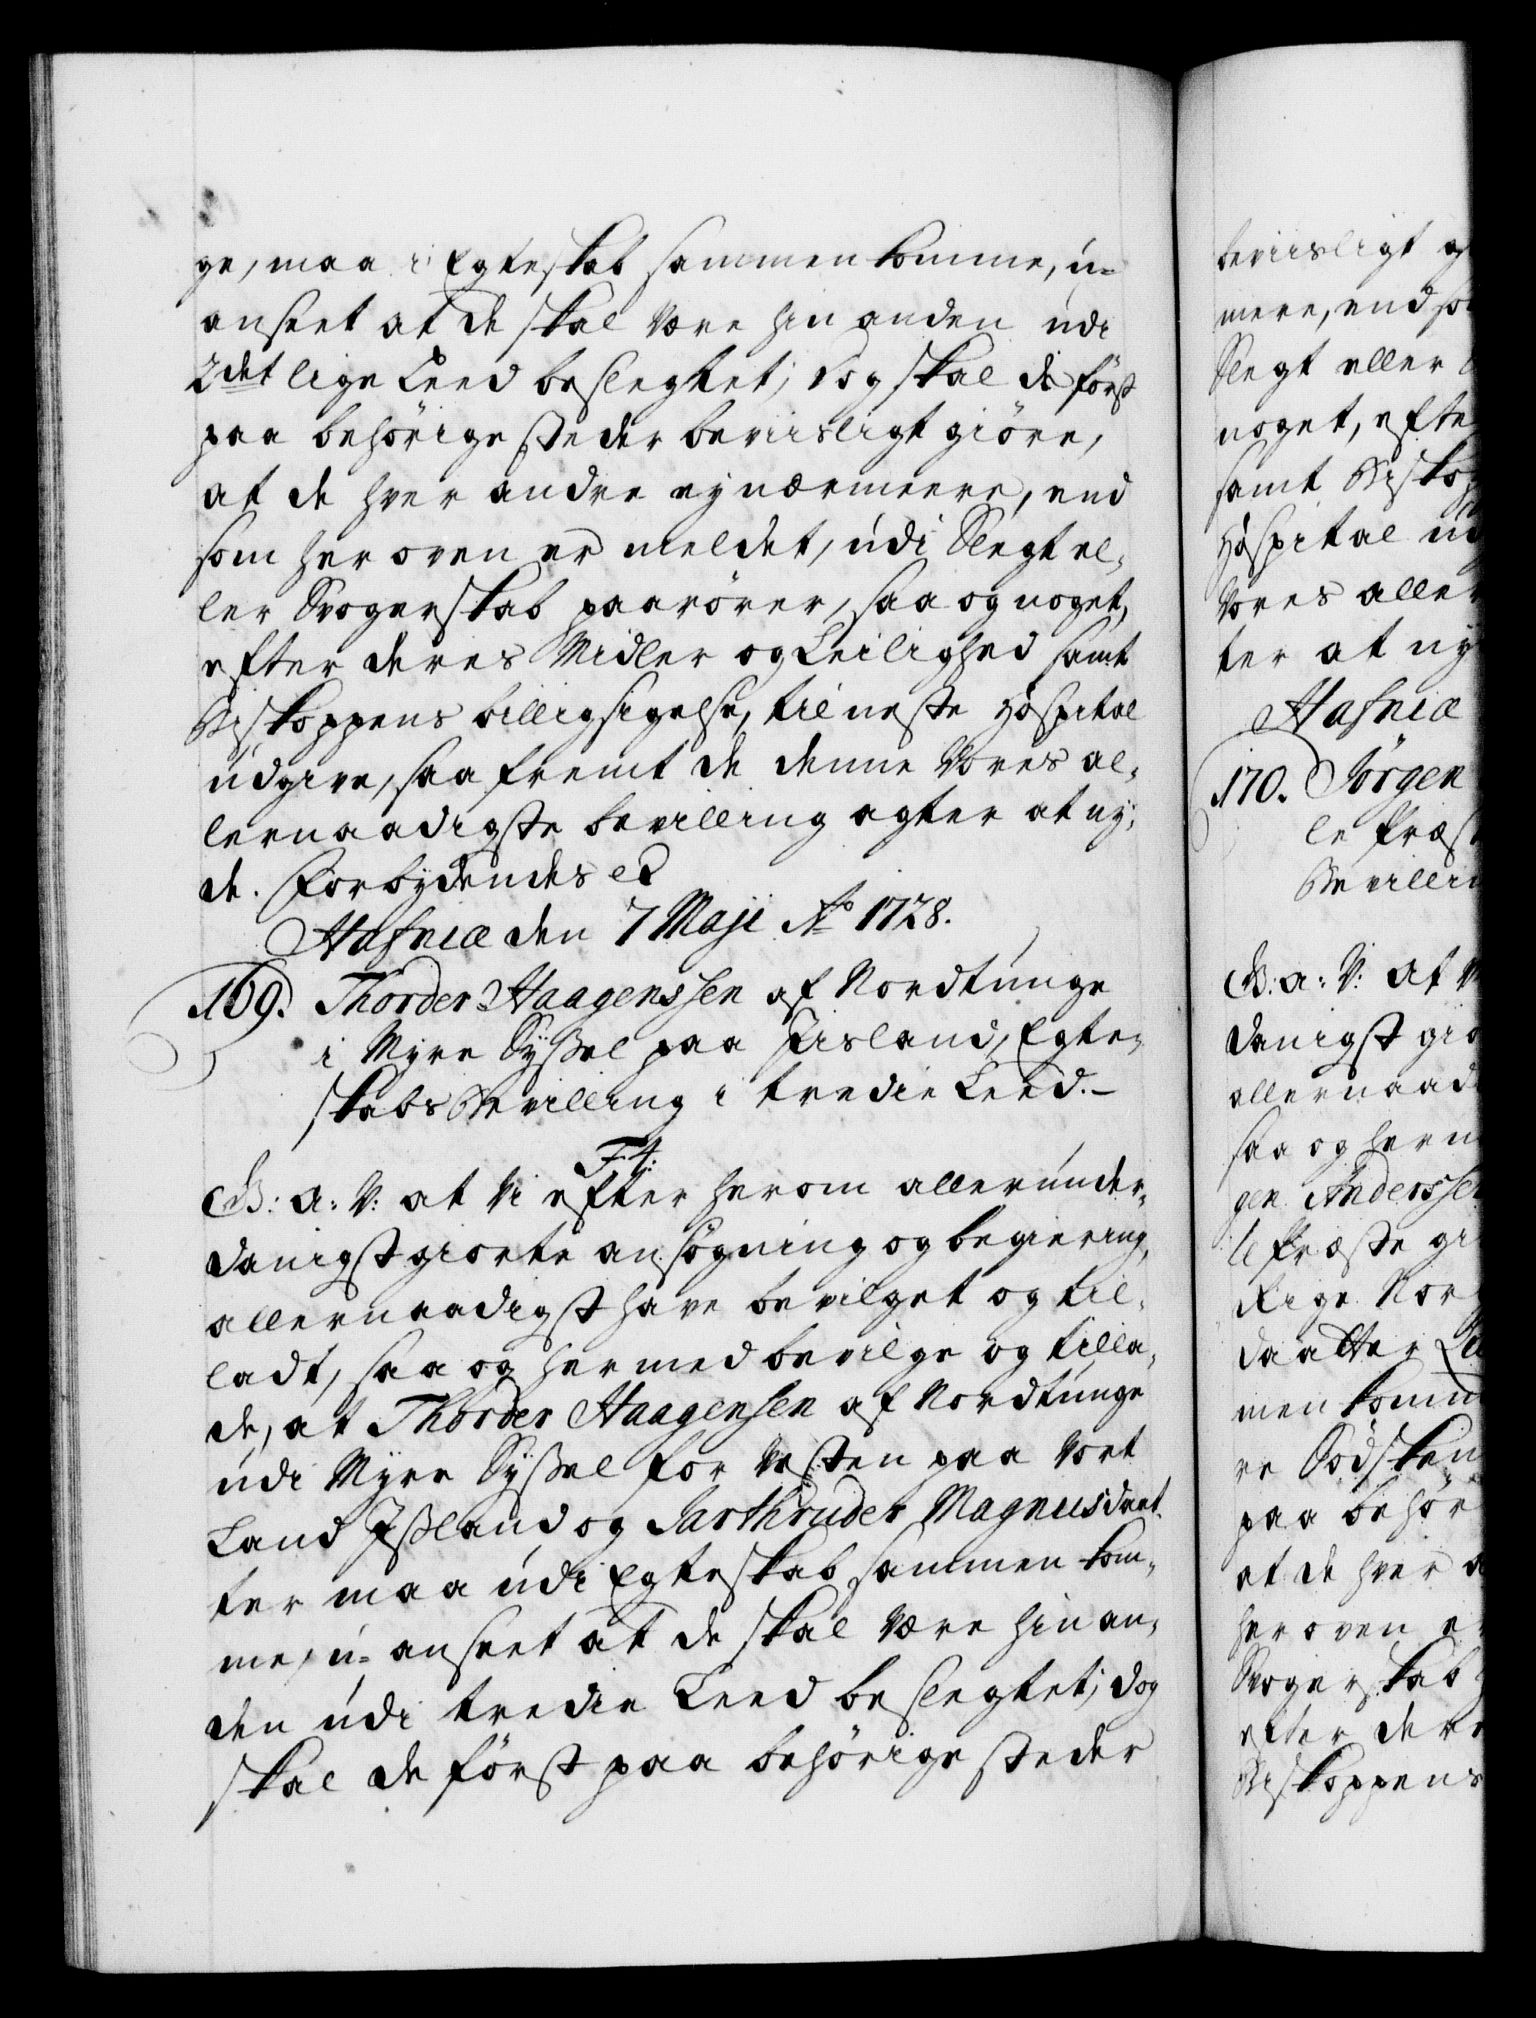 ge, maa i Egteskab sammen komme, u-
anseet at de skal være hin anden udi
2det lige Leed beslegtet; dog skal de først
paa behörige steder beviisligt giöre,
at de hver andre ey nærmeere, end
som her oven er meldet, udi Slegt el-
ler Svogerskab paarörer, saa og noget,
efter deres Midler og Leilighed samt
Biskoppens billigsigelse, til neste Hospital
udgive, saa fremt de denne Vores al-
lernaadigste bevilling agter at ny-
de. Forbydendes &
Hafniæ den 7 Maji Ao 1728.
169. Thorder Haagenssen af Nordtunge
i Myre Syssel paa Iisland, Egte-
skabs Bevilling i tredie Leed.-
F. 4.
G: a: V: at Vi efter herom allerunder-
danigst giorte ansögning og begiering,
allernaadigst have bevilget og til-
ladt, saa og hermed bevilge og tilla-
de, at Thorder Haagensen af Nordtunge
udi Myre Syssel for Vesten paa Vort
Land Issland og Jarthruder Magnusdaat-
ter maa udi Egteskab sammen kom-
me, u-anseet at de skal være hin an-
den udi tredie Leed beslegtet; dog
skal de först paa behörige steder
beviisligt
mere, end
Slegt eller
noget, efte
samt Bisko
Hospital ud
Vores aller
ter at ny
Hafniæ
170. Jörgen
le Præst
Bevillin
G: a: V: at V
danigst gio
allernaad
saa og herm
gen Anderssen
le Præste gi
Rige Nor
daatter
men komm
re Södsken
paa behör
at de hver a
her oven e
Svogerskab
efter dere
Biskoppens